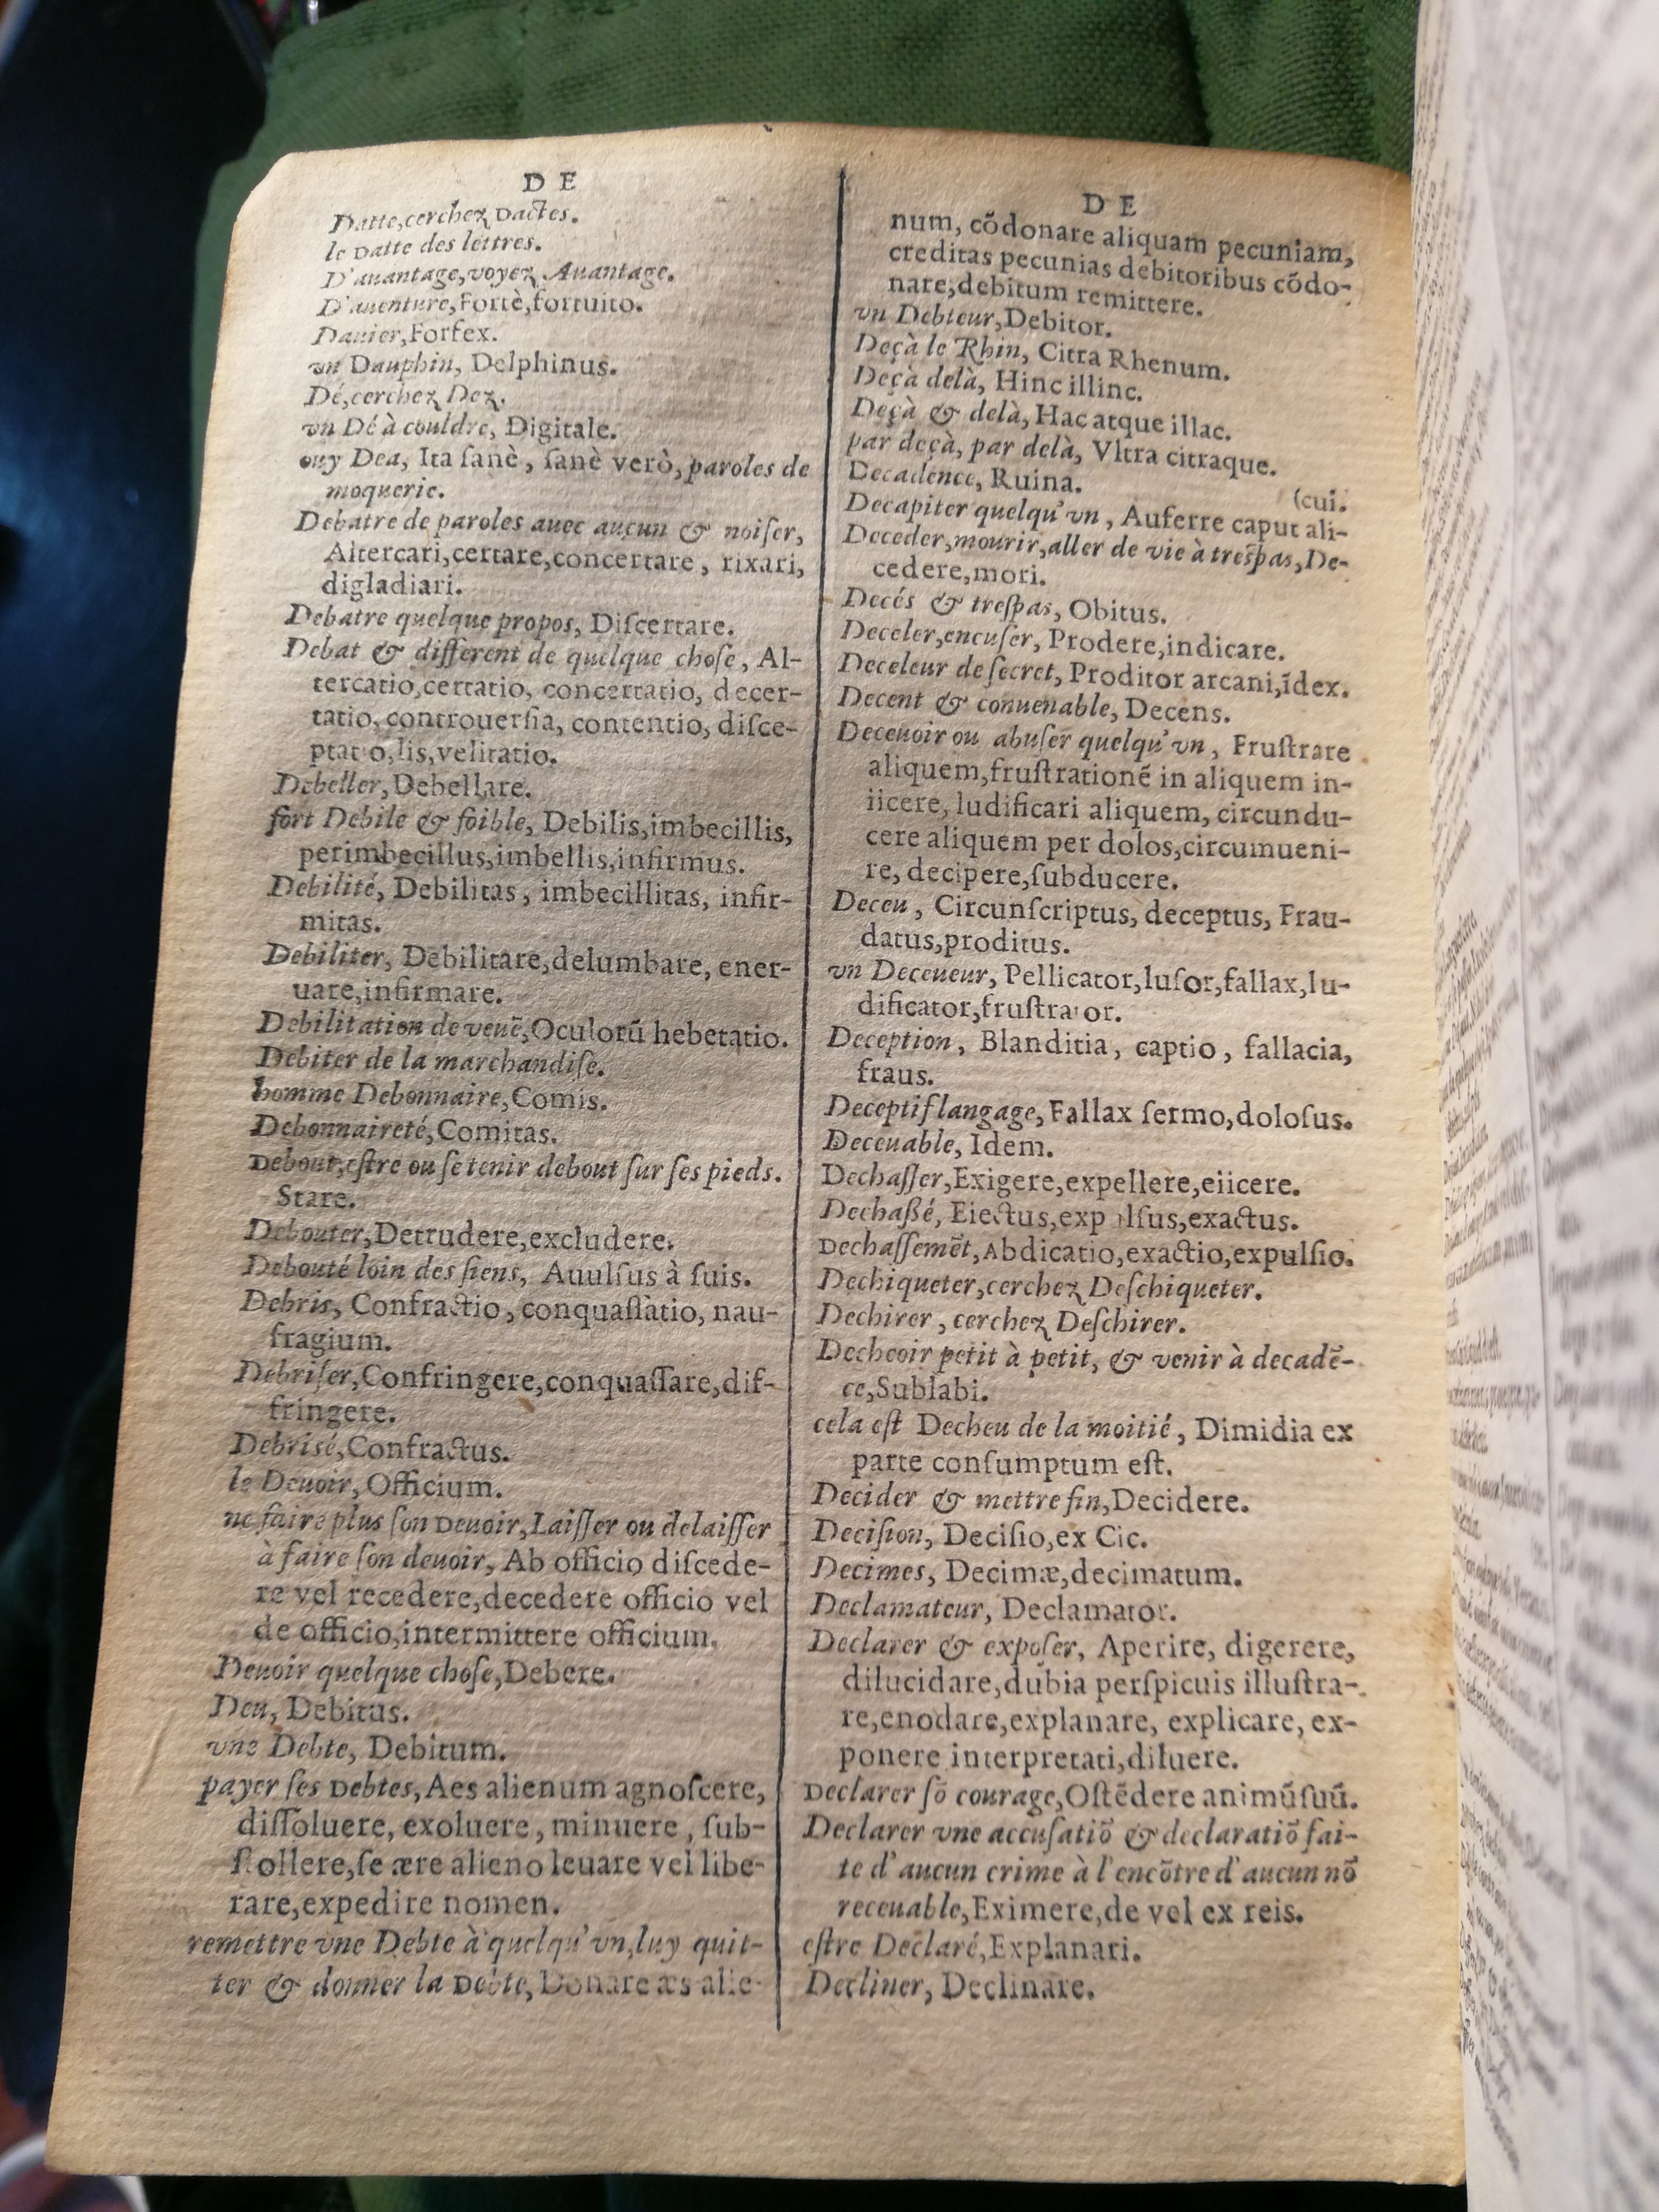 DE
Datte,cerchez Dactes.
le Datte des lettres.
D'auantage,voyez Auantage.
D'auenture,Fortè,fortuito.
Dauier,Forfex.
vn Dauphin, Delphinus.
Dé,cerchez Dez.
vn Dé à couldre, Digitale.
ouy Dea, Ita ſanè, ſanè verò, paroles de
moquerie.
Debatre de paroles auec aucun & noiſer,
Altercari,certare,concertare, rixari,
digladiari.
Debatre quelque propos, Diſcertare.
Debat & different de quelque choſe, Al-
tercatio,certatio, concertatio, decer-
tatio, controuerſia, contentio, diſce-
ptatio,lis,velitatio.
Debeller,Debellare.
fort Debile & foible, Debilis,imbecillis,
perimbecillus,imbellis,infirmus.
Debilité, Debilitas, imbecillitas, infir-
mitas.
Debiliter, Debilitare,delumbare, ener-
uare,infirmare.
Debilitation de veuë,Oculorū hebetatio.
Debiter de la marchandiſe.
homme Debonnaire,Comis.
Debonnaireté,Comitas.
Debout,eſtre ou ſe tenir debout ſur ſes pieds.
Stare.
Debouter,Detrudere,excludere.
Debouté loin des ſiens, Auulſus à ſuis.
Debris, Confractio, conquaſſatio, nau-
fragium.
Debriſer,Confringere,conquaſſare,dif-
fringere.
Debrisé,Confractus.
le Deuoir,Officium.
ne faire plus ſon Deuoir,Laiſſer ou delaiſſer
à faire ſon deuoir, Ab officio diſcede-
re vel recedere,decedere officio vel
de officio,intermittere officium.
Deuoir quelque choſe,Debere.
Deu, Debitus.
vne Debte, Debitum.
payer ſes Debtes,Aes alienum agnoſcere,
diſſoluere, exoluere, minuere, ſub-
ſtollere,ſe ære alieno leuare vel libe-
rare,expedire nomen.
remettre vne Debte à quelqu'vn,luy quit-
ter & donner la Debte,Donare æs alie-
DE
num, cōdonare aliquam pecuniam,
creditas pecunias debitoribus cōdo-
nare,debitum remittere.
vn Debteur,Debitor.
Deçà le Rhin, Citra Rhenum.
Deçà delà, Hinc illinc.
Deçà & delà, Hac atque illac.
par deçà, par delà, Vltra citraque.
Decadence, Ruina.
(cui.
Decapiter quelqu'vn, Auferre caput ali-
Deceder,mourir,aller de vie à treſpas,De-
cedere,mori.
Decés & treſpas, Obitus.
Deceler,encuſer, Prodere,indicare.
Deceleur de ſecret, Proditor arcani,īdex.
Decent & conuenable, Decens.
Deceuoir ou abuſer quelqu'vn, Fruſtrare
aliquem,fruſtrationē in aliquem in-
iicere, ludificari aliquem, circundu-
cere aliquem per dolos,circumueni-
re, decipere,ſubducere.
Deceu, Circunſcriptus, deceptus, Frau-
datus,proditus.
vn Deceueur, Pellicator,luſor,fallax,lu-
dificator,fruſtrator.
Deception, Blanditia, captio, fallacia,
fraus.
Deceptif langage,Fallax ſermo,doloſus.
Deceuable, Idem.
Dechaſſer,Exigere,expellere,eiicere.
Dechaßé, Eiectus,expulſus,exactus.
Dechaſſemēt,Abdicatio,exactio,expulſio.
Dechiqueter,cerchez Deſchiqueter.
Dechirer, cerchez Deſchirer.
Decheoir petit à petit, & venir à decadē-
ce,Sublabi.
cela eſt Decheu de la moitié, Dimidia ex
parte conſumptum eſt.
Decider & mettre fin,Decidere.
Deciſion, Deciſio,ex Cic.
Decimes, Decimæ,decimatum.
Declamateur, Declamator.
Declarer & expoſer, Aperire, digerere,
dilucidare,dubia perſpicuis illuſtra-
re,enodare,explanare, explicare, ex-
ponere interpretati,diluere.
Declarer ſō courage,Oſtēdere animū ſuū.
Declarer vne accuſatiō & declaratiō fai-
te d'aucun crime à l'encōtre d'aucun nō
receuable,Eximere,de vel ex reis.
eſtre Declaré,Explanari.
Decliner, Declinare.